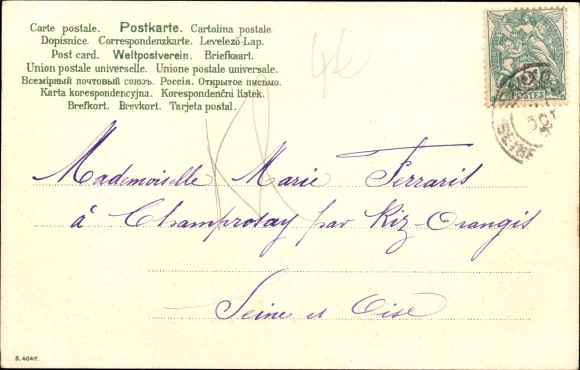 Carte postale. Postkarte. Cartolina postale.
Dopisnice. Correspondenzkarte. Levelező-Lap.
Post card. Weltpostverein. Briefkaart.
Union postale universelle. Unione postale universale.
Всемірный почтовый союзъ. Россія. Открытое письмо.
Karta korespondencyjna. Korespondenční lístek.
Brefkort. Brevkort. Tarjeta postal.
POSTES
SEINE
Mademoiselle Marie Ferraris
à Champrosay par Riz-Orangis
Seine et Oise
S. 4047.